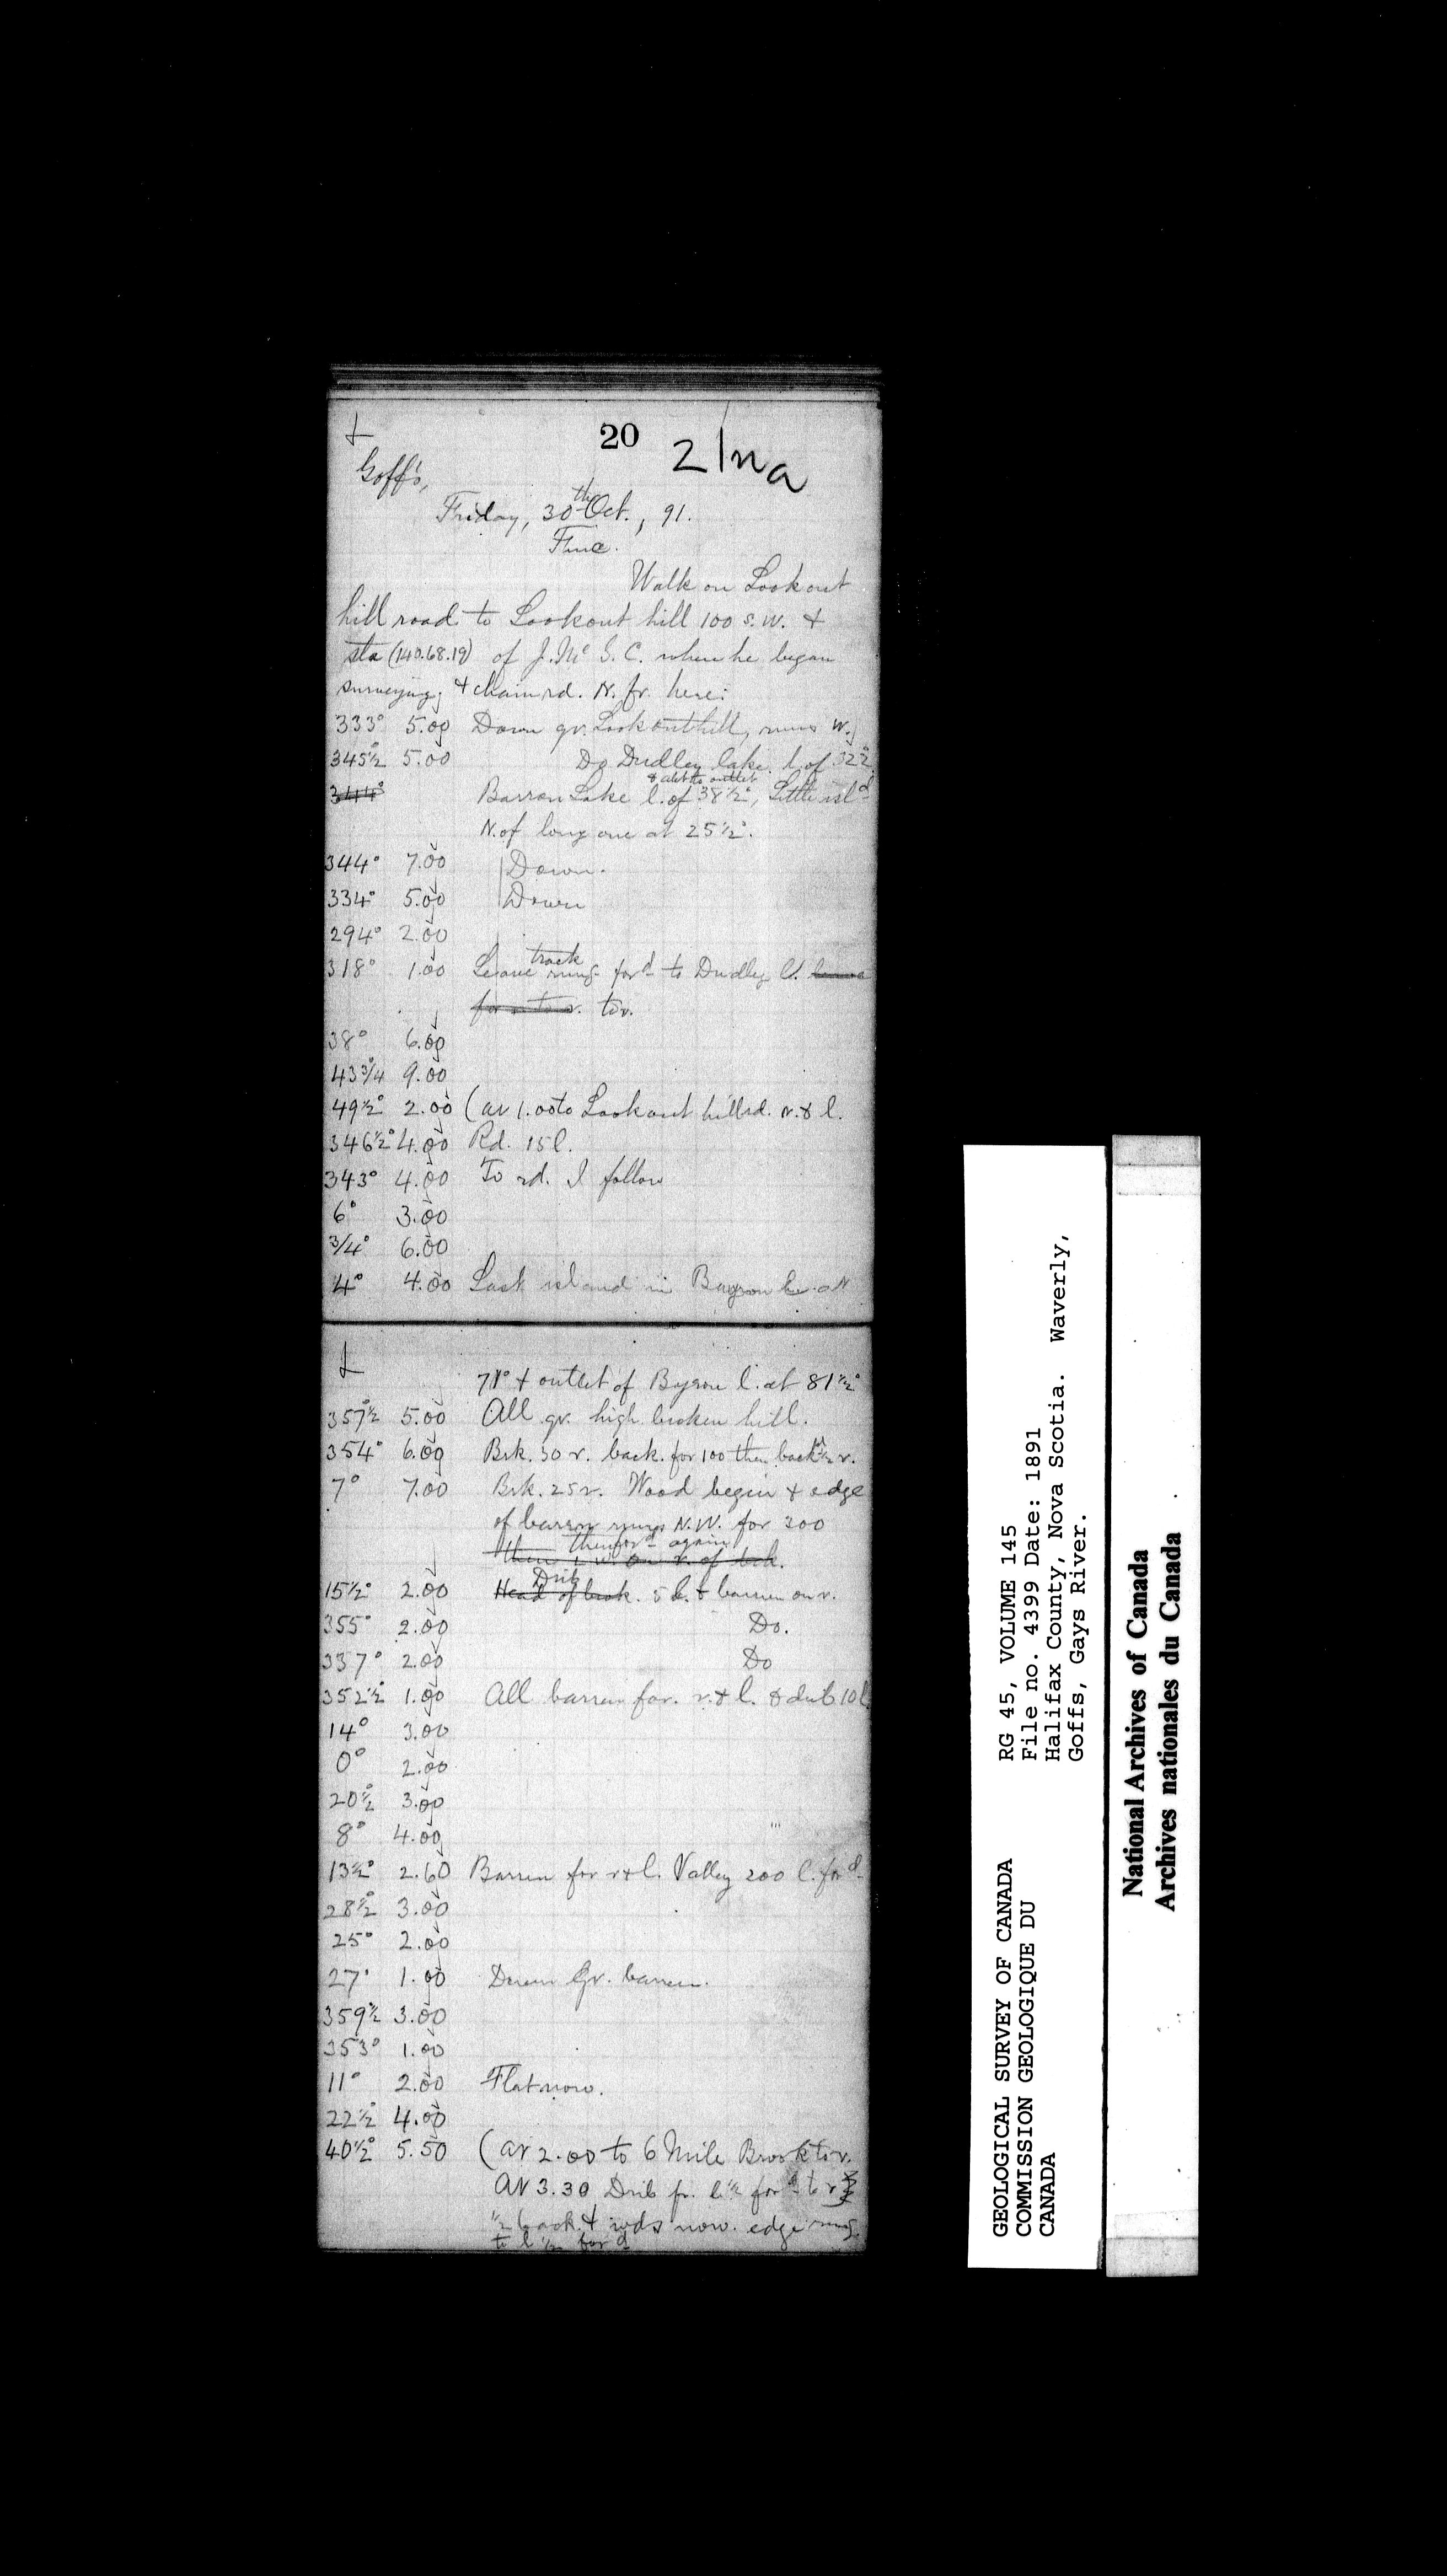 20
21na
Goff's,
Friday, 30th Oct., 91.
Fine.
Walk on Lookout
hill road to Lookout hill 100 s.w. +
sta (140.68.19) of J. Mc G. C. where he began
surveying, + chain rd. N. fr. here:
333° 5.00 Down gr. Lookout hill, runs W.
345½° 5.00 Do Dudley lake. l. of 322°
344° Barron Lake l. of 38½°, Little isld
N. of long one at 25½°.
344° 7.00 Down.
334° 5.00 Down
294° 2.00
318° 1.00 Leave track runng ford to Dudley l.
to r.
38° 6.00
43¾° 9.00
49½° 2.00 (at 1.00 to Lookout hill rd. r. & l.
346½° 4.00 Rd. 15 l.
343° 4.00 To rd. I follow
6° 3.00
¾° 6.00
4° 4.00 Last island in at
71° + outlet of l. at 81½°
357½° 5.00 All gr. high broken hill.
354° 6.00 Brk. 30 r. back. for 100 then backd ½ r.
7° 7.00 Brk. 25 r. Wood begin + edge
of barren runs N.W. for 300
then ford again
15½° 2.00 Drib 5 l. & barren on r.
355° 2.00 Do.
337° 2.00 Do
352½° 1.00 All barren far. r. & l. & drib 10 l.
14° 3.00
0° 2.00
20½° 3.00
8° 4.00
13½° 2.60 Barren far r & l. Valley 200 l. ford.
28½° 3.00
25° 2.00
27° 1.00 Down Gr. barren.
359½° 3.00
353° 1.00
11° 2.00 Flat now.
22½° 4.00
40½° 5.50 (at 2.00 to 6 Mile Brook to r.
At 3.30 Drib fr. l ½ ford to r
½ back. + wds now. edge runs
to l ½ ford
GEOLOGICAL SURVEY OF CANADA
COMMISSION GEOLOGIQUE DU
CANADA
RG 45, VOLUME 145
File no. 4399 Date: 1891
Halifax County, Nova Scotia. Waverly,
Goffs, Gays River.
National Archives of Canada
Archives nationales du Canada